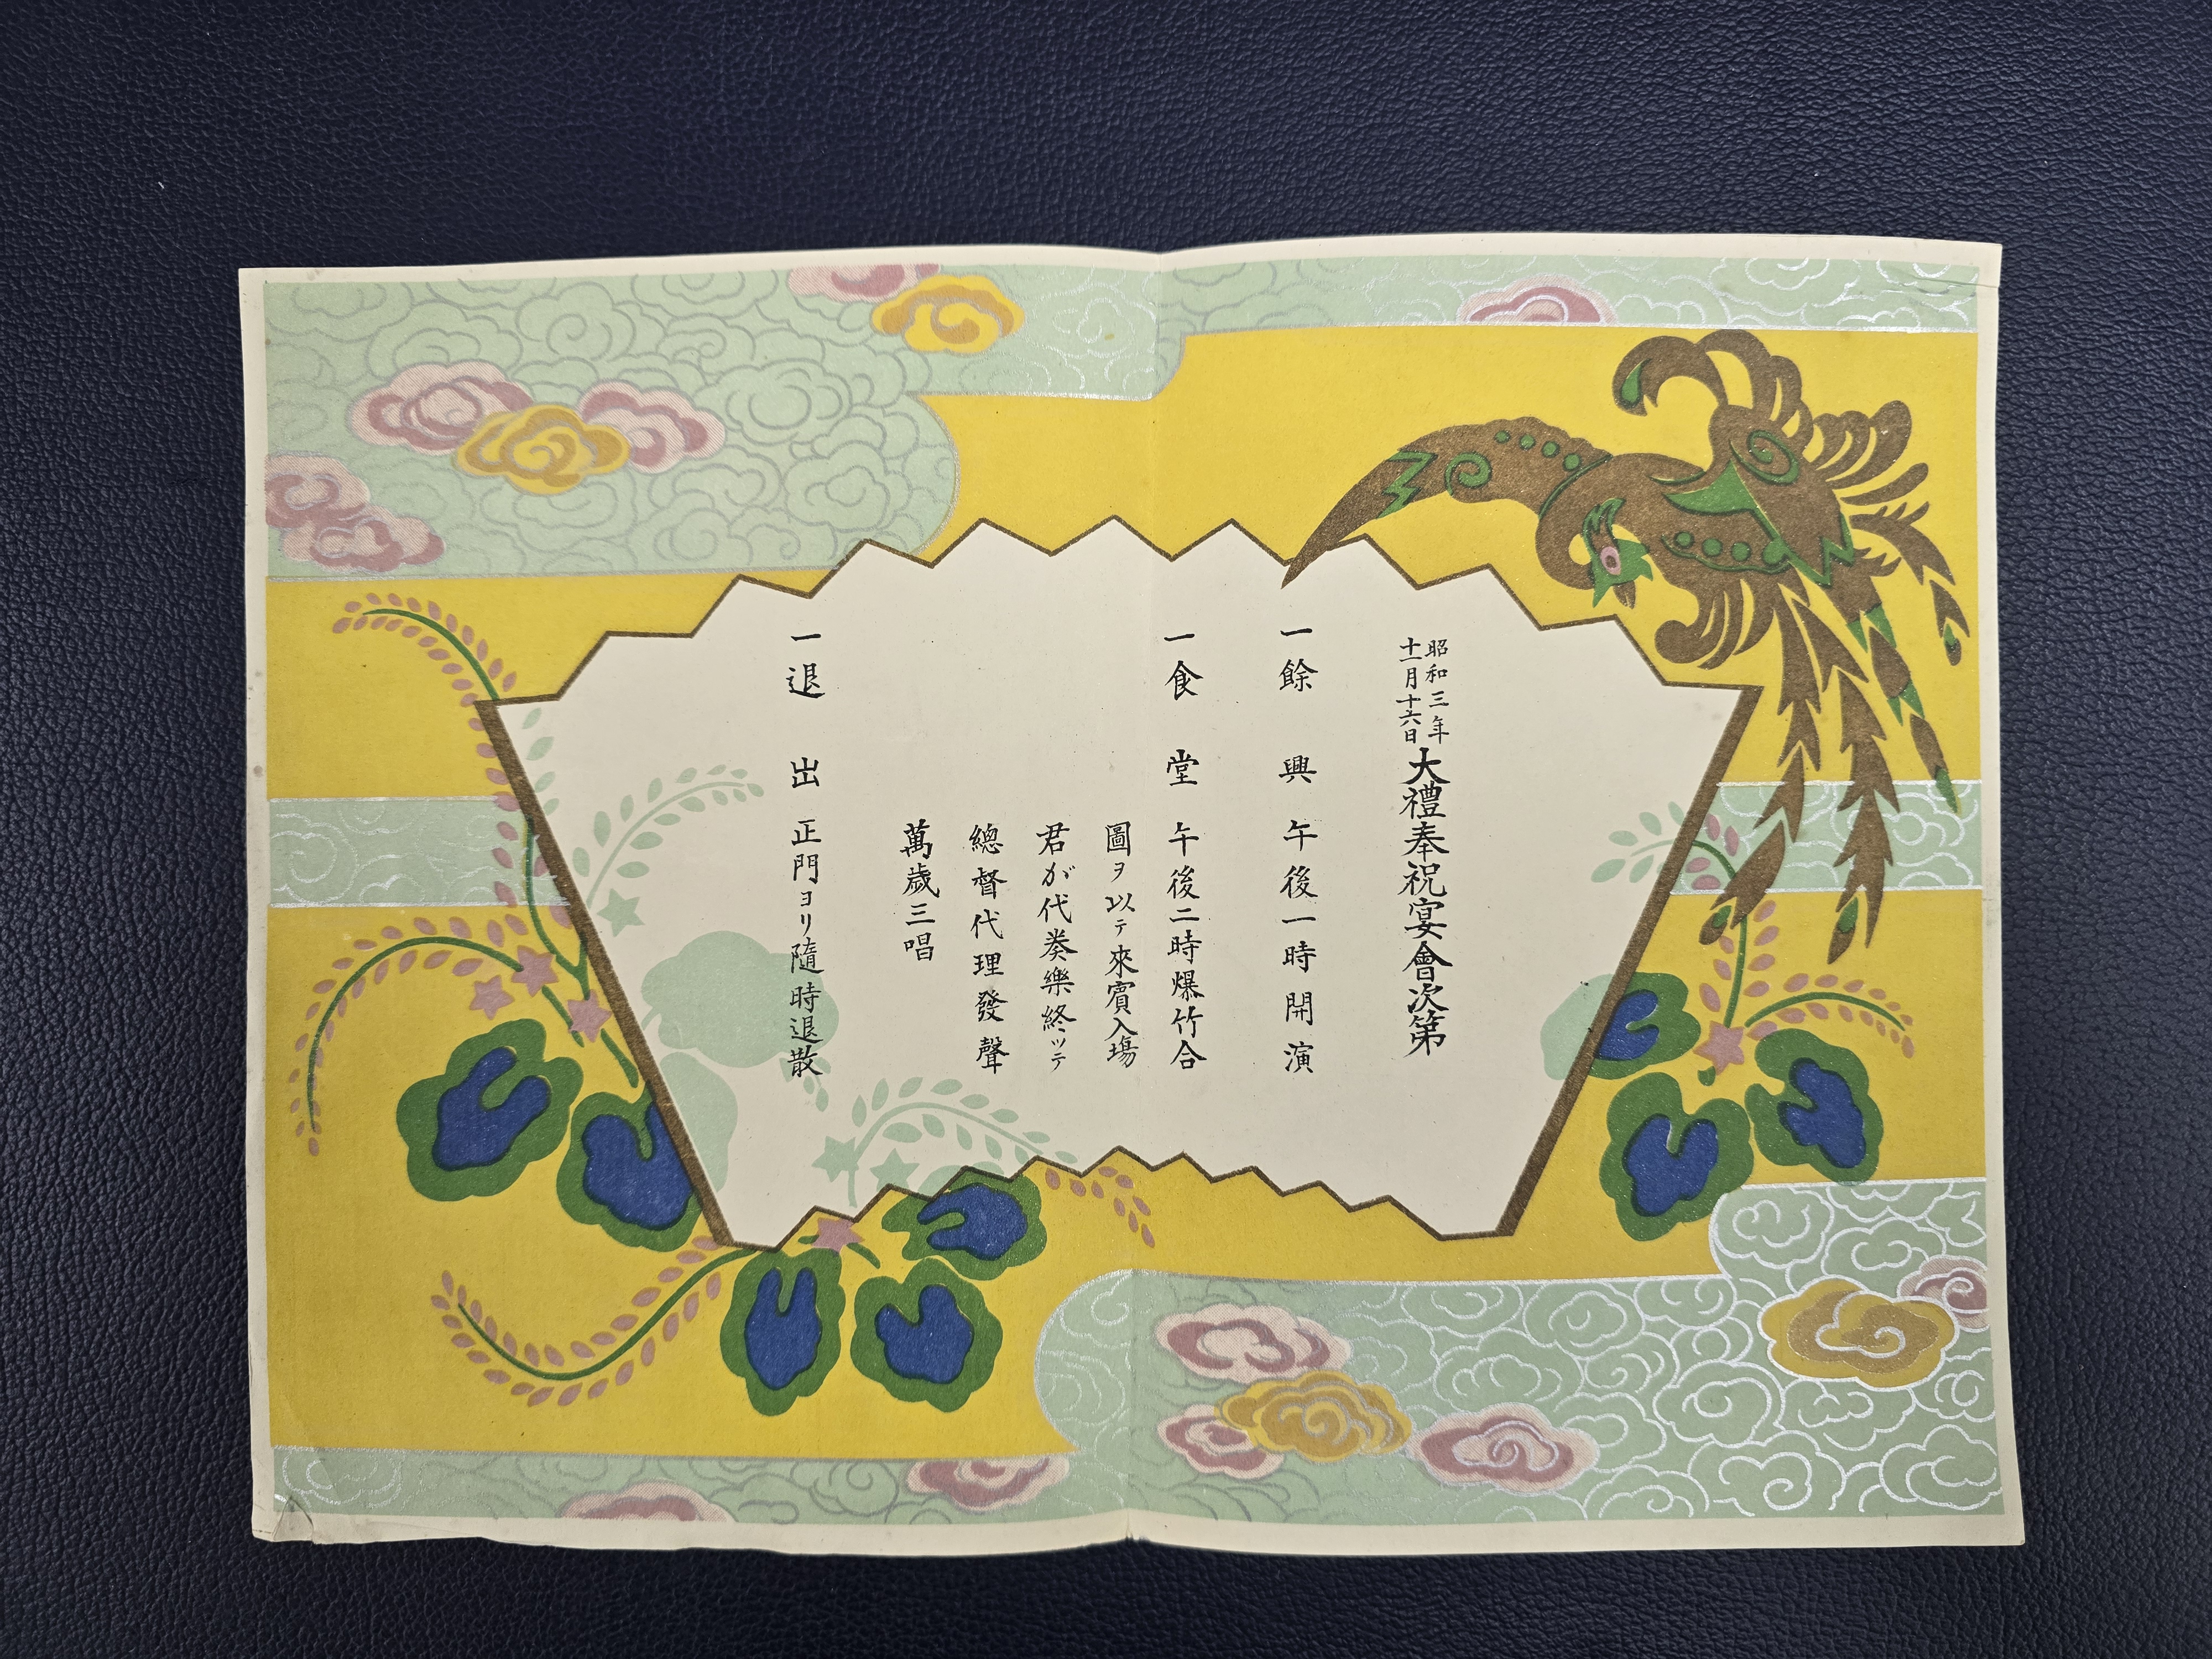 昭和三年
十一月十六日
大禮奉祝宴會次第
一餘興 午後一時開演
一食堂 午後二時爆竹合
圖ヲ以テ來賓入場
君が代奏樂終ッテ
總督代理發聲
萬歳三唱
一退出 正門ヨリ隨時退散